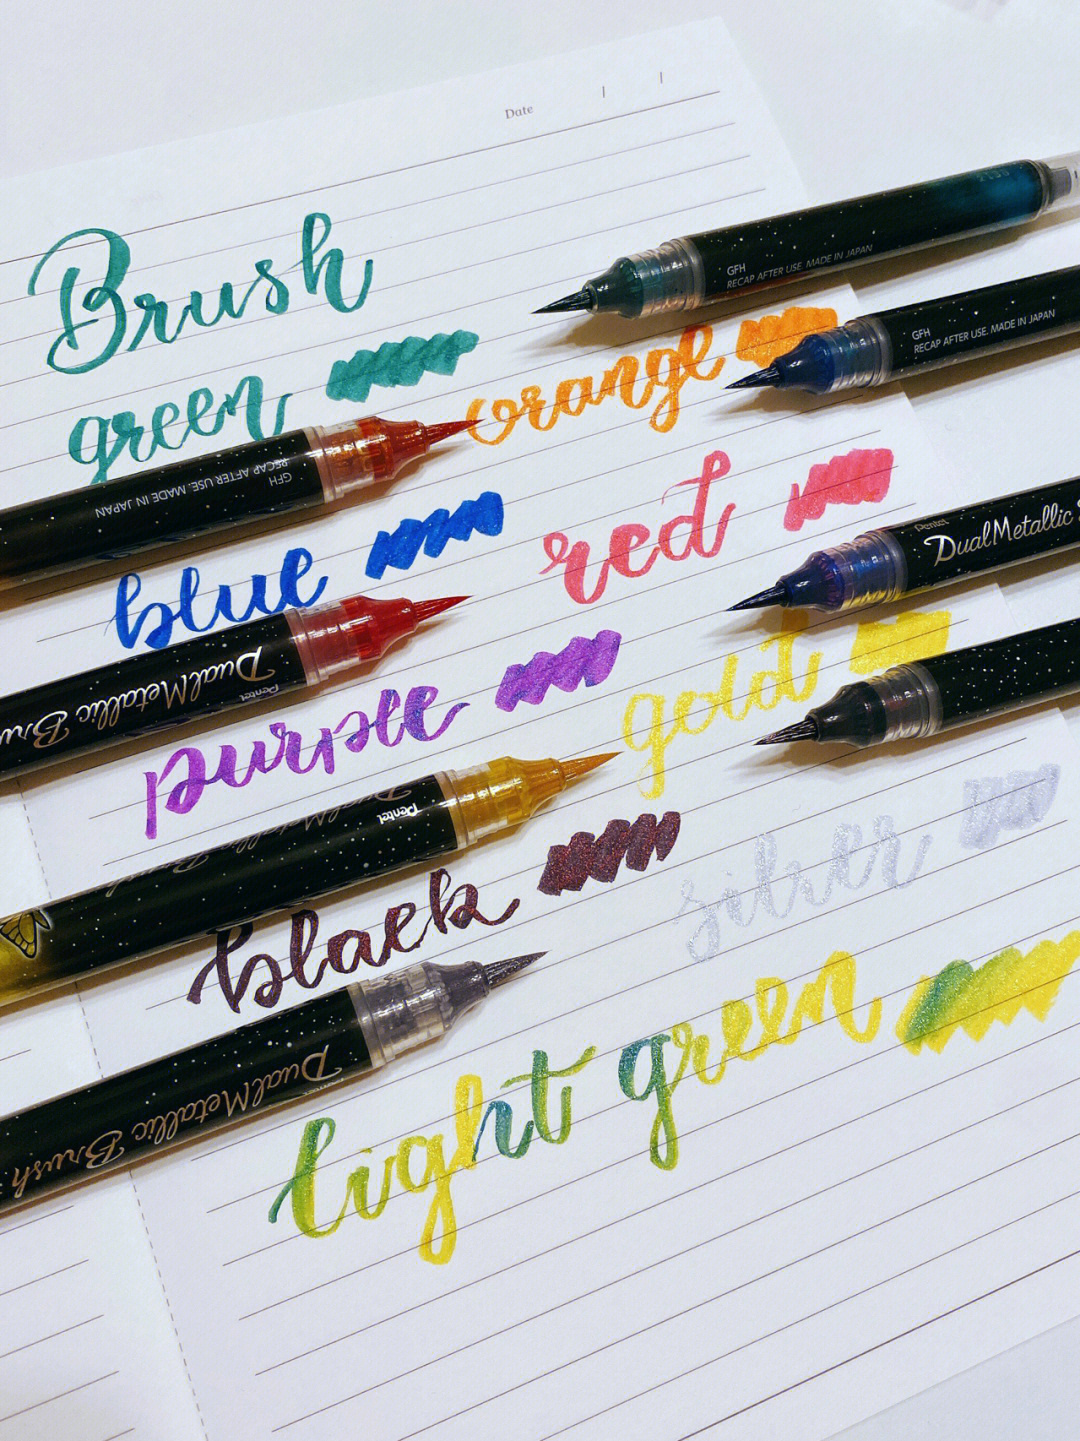 Date
Brush
GFH
RECAP AFTER USE. MADE IN JAPAN
GFH
RECAP AFTER USE. MADE IN JAPAN
green
orange
GFH
RECAP AFTER USE. MADE IN JAPAN
blue
red
Pentel
DualMetallic
Pentel
DualMetallic Bru
purple
gold
Pentel
DualMetallic Brush
black
silver
Pentel
DualMetallic Brush
light green